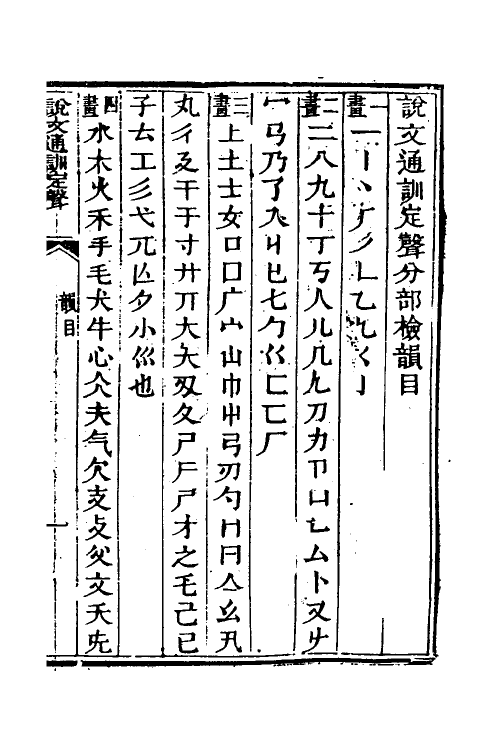 說文通訓定聲分部檢韻目
一畫 一丨丶丿乀乚乙乁𡿨亅
二畫 二八九十丁丂人儿几𠘧刀力卩凵乚厶卜又𠂇
冖𢎘乃了入丩匕七勹巜匚匸厂
三畫 上土士女口囗广宀山巾屮弓刃勺冂曰亼幺卂
丸彳夊干于寸廾丌大夨㕛夂尸𠂆尸才之乇己已
子𠫓工彡弋兀亾夕小巛也
四畫 水木火禾手毛犬牛心仌夫气欠支攴父文天旡
說文通訓定聲
韻目
一